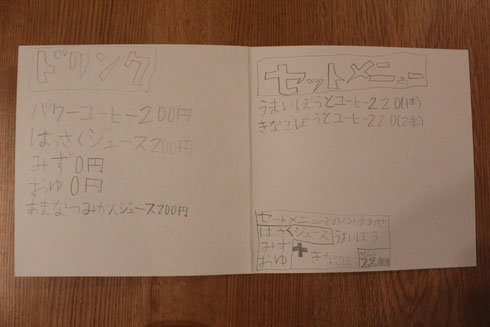 ドリンク
パワーコーヒー200円
はっさくジュース200円
みず0円
おゆ0円
あまなつみかんジュース200円
セットメニュー
うまいぼうとコーヒー220(1本)
きなこぼうとコーヒー220(2本)
セットメニューとのくみあわせ
はっさくジュース うまいぼう
みず
おゆ + きなこぼう